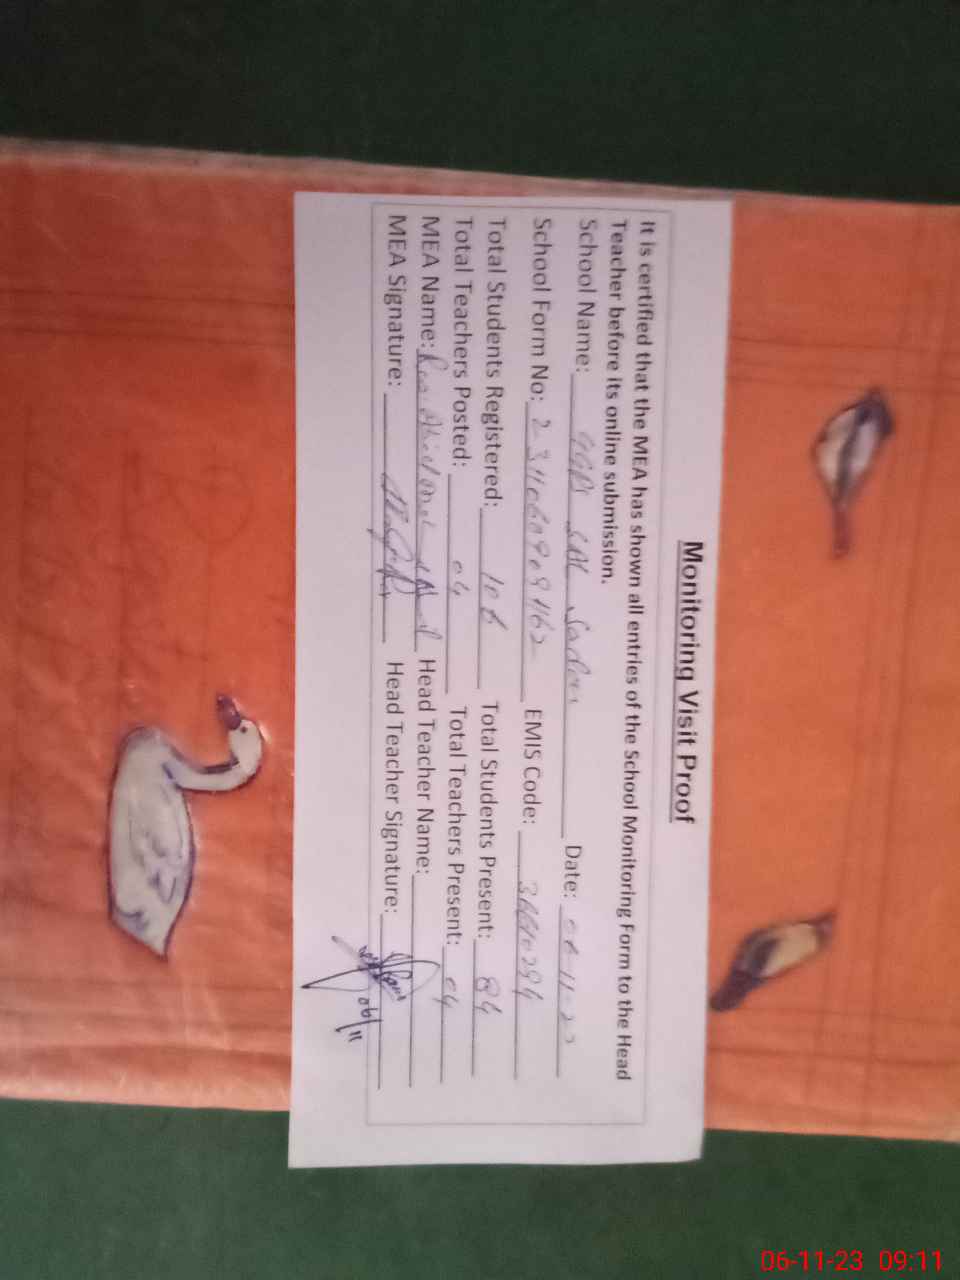 Monitoring Visit Proof
It is certified that the MEA has shown all entries of the School Monitoring Form to the Head
Teacher before its online submission.
School Name: Date: 06-11-23
School Form No: EMIS Code:
Total Students Registered: 106 Total Students Present: 84
Total Teachers Posted: 04 Total Teachers Present: 04
MEA Name: Head Teacher Name:
MEA Signature: Head Teacher Signature:
06/11
06-11-23 09:11